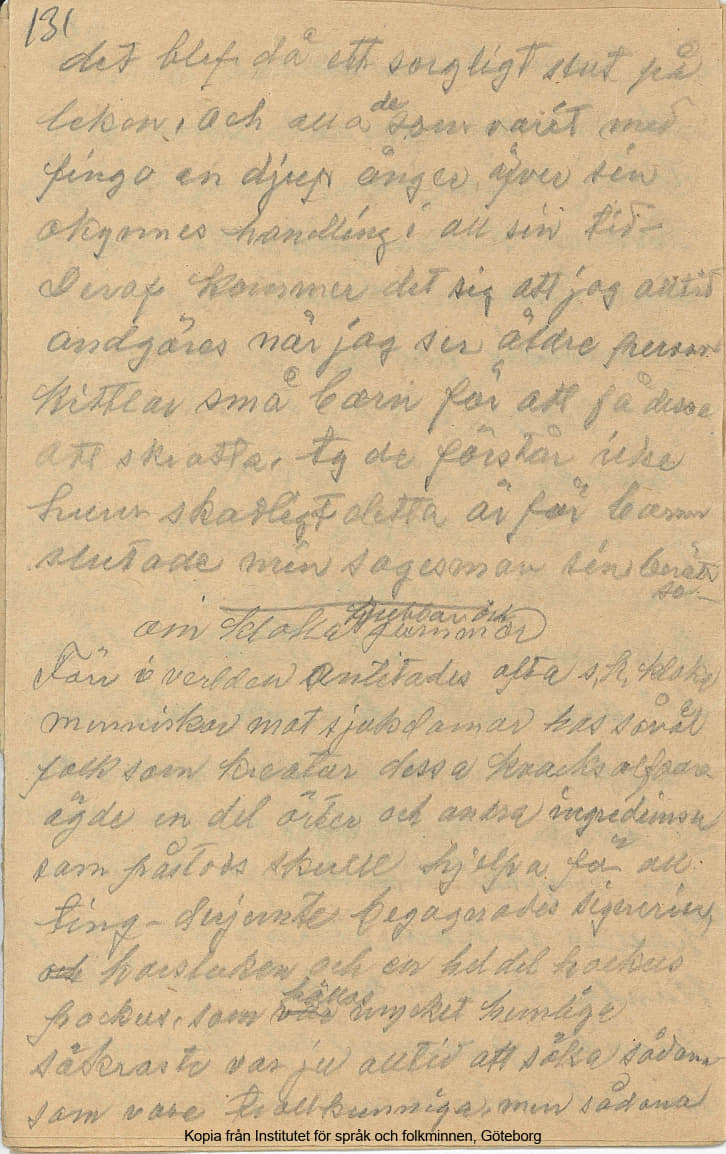 131
det blef då ett sorgligt slut på
leken, och alla de som varit med
fingo en djup ånger över sin
okynnes handling i all sin tid
Deraf kommer det sig att jag alltid
andgöres när jag ser äldre person
kittlar små barn för att få dessa
att skratta, ty de förstår icke
huru skadligt detta är för barnen
slutade min sagesman sin berät
se
om kloka gubbar och gummor
Förr i verlden anlitades ofta s.k. kloka
menniskor mot sjukdomar hos såväl
folk som kreatur dessa kvacksalfvare
ägde en del örter och andra ingredienser
som påstods skulle hjelpa för all
ting - derjemte begagnades signerier
korstecken och en hel del hockus
pockus, som hållos mycket hemlige
säkraste var ju alltid att söka sådana
som vore trollkunniga, men sådana
Kopia från Institutet för språk och folkminnen, Göteborg